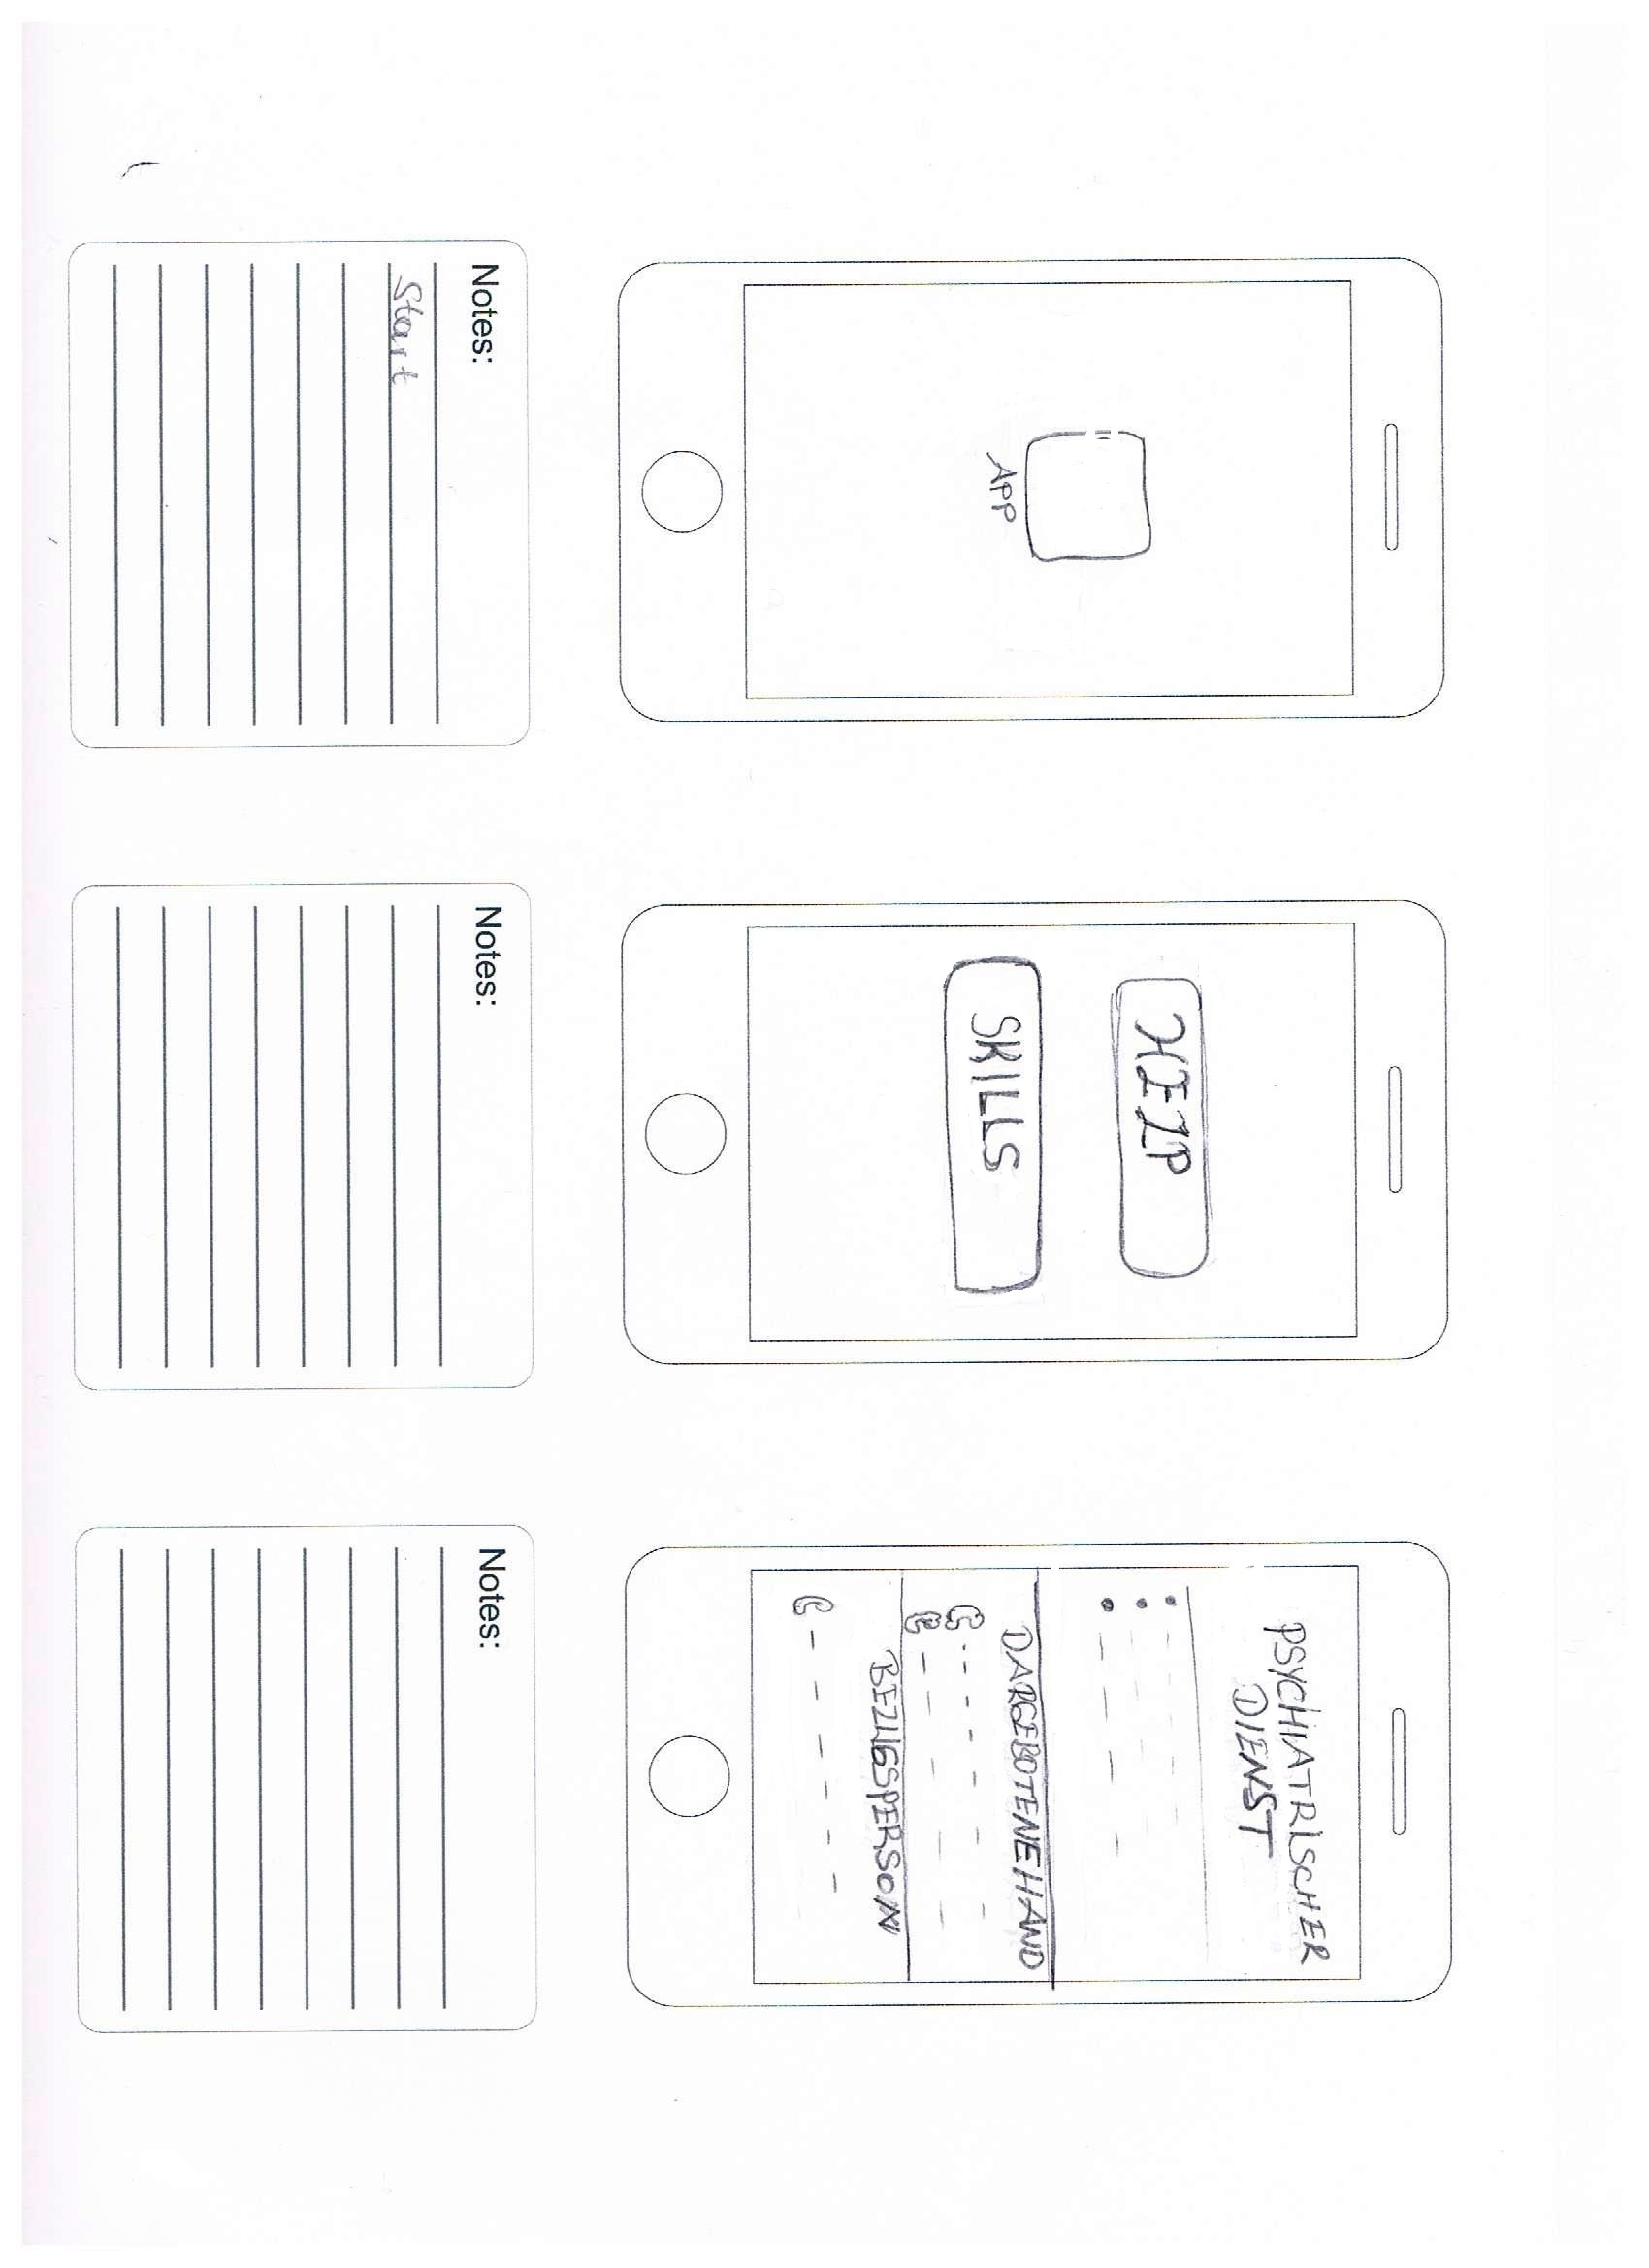 APP
Notes:
Start
HElP
SKILLS
Notes:
PSYCHIATRISCHER
DIENST
DARGEBOTENE HAND
BEZUGSPERSON
Notes: